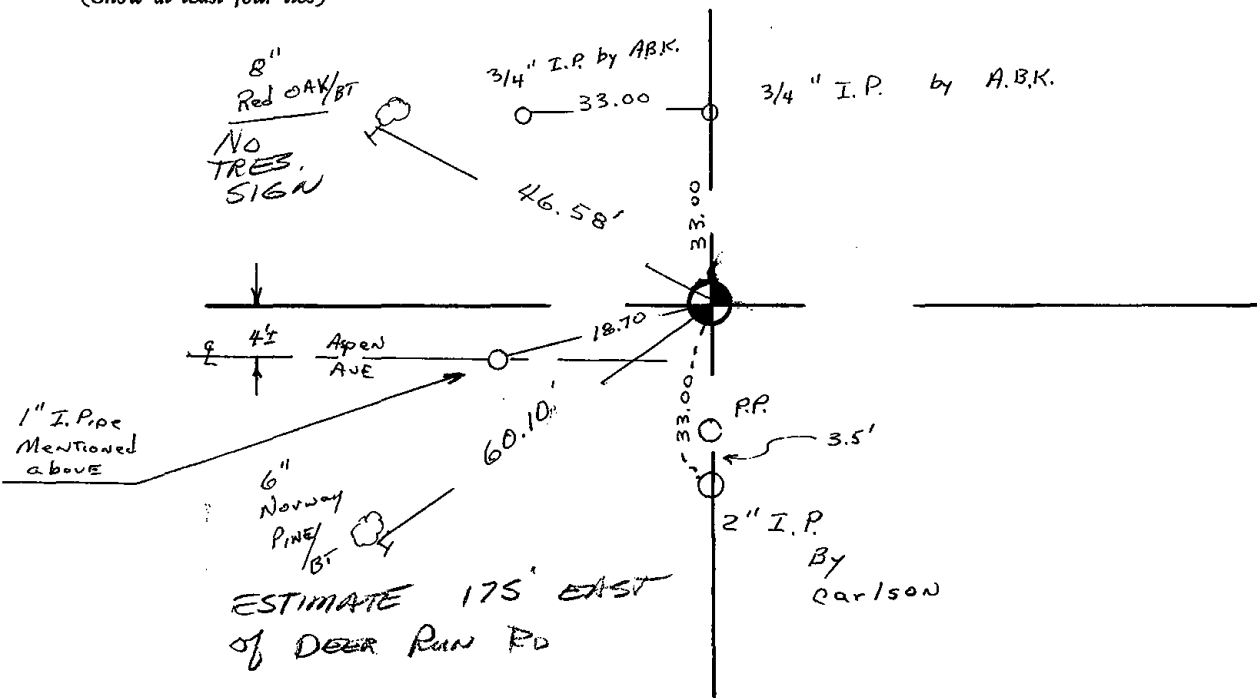 (Show at least four ties)
8"
Red OAK/BT
NO
TRES.
SIGN
3/4" I.P. by A.B.K.
33.00
3/4" I.P. by A.B.K.
46.58'
33.00
4'±
℄
Aspen
AVE
18.70
1" I. Pipe
Mentioned
above
60.10'
33.00
P.P.
3.5'
6"
Norway
PINE/
BT
2" I.P.
By
Carlson
ESTIMATE 175' EAST
of DEER RUN RD